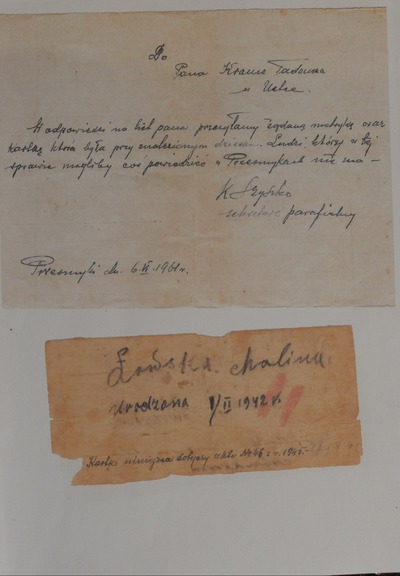 Do
Pana Kraus Tadeusza
w Ustce.
W odpowiedzi na list pana przesyłamy żądaną metrykę oraz
kartkę która była przy znalezionym dziecku. Ludzi, którzy w tej
sprawie mogliby coś powiedzieć w Przesmykach nie ma -
K Szyszko
sekretarz parafialny
Przesmyki dn. 6.VI.1961 r.
Halina
urodzona 1/II 1942 r.
Kartka niniejsza dotyczy aktu Nr 46 z r. 1942.-